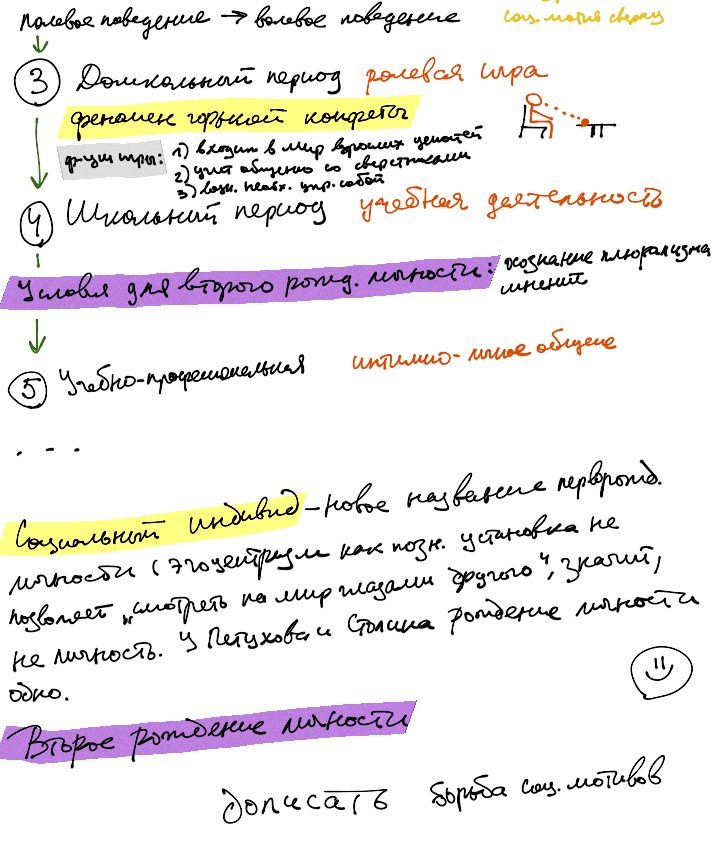 полевое поведение → волевое поведение соц. мотив сверху
3 Дошкольный период ролевая игра
феномен горькой конфеты
ф-ции игры: 1) входит в мир взрослых ценностей
2) учит общению со сверстниками
3) возн. необх. упр. собой
4 Школьный период учебная деятельность
Условя для второго рожд. личности: осознание плюрализма
мнений
5 Учебно-професиональная интимно-личное общение
. . .
Социальный индивид – новое название первророжд.
личности (эгоцентризм как позн. установка не
позволяет „смотреть на мир глазами другого“, значит,
не личность. У Петухова и Столина рождение личности
одно.
Второе рождение личности
дописать борьба соц. мотивов